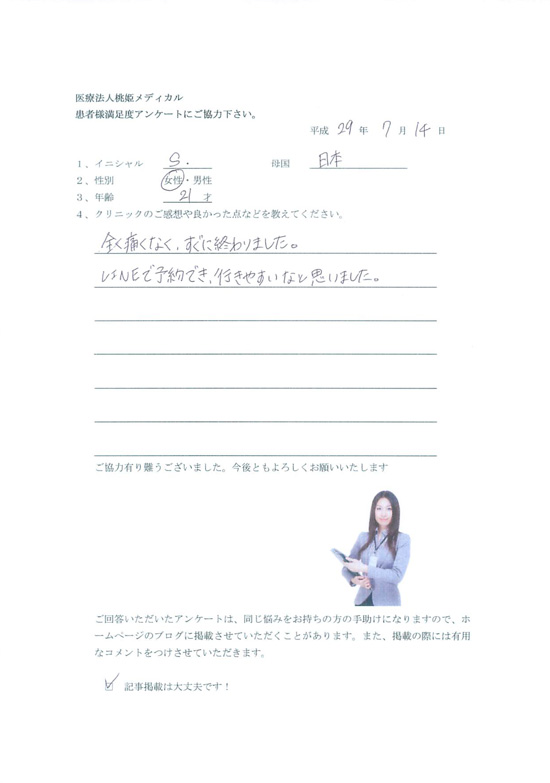 医療法人桃姫メディカル
患者様満足度アンケートにご協力下さい。
平成 29 年 7 月 14 日
1、イニシャル S. 母国 日本
2、性別 女性・男性
3、年齢 21 才
4、クリニックのご感想や良かった点などを教えてください。
全く痛くなく、すぐに終わりました。
LINEで予約でき、行きやすいなと思いました。
ご協力有り難うございました。今後ともよろしくお願いいたします
ご回答いただいたアンケートは、同じ悩みをお持ちの方の手助けになりますので、ホ
ームページのブログに掲載させていただくことがあります。また、掲載の際には有用
なコメントをつけさせていただきます。
☑ 記事掲載は大丈夫です！